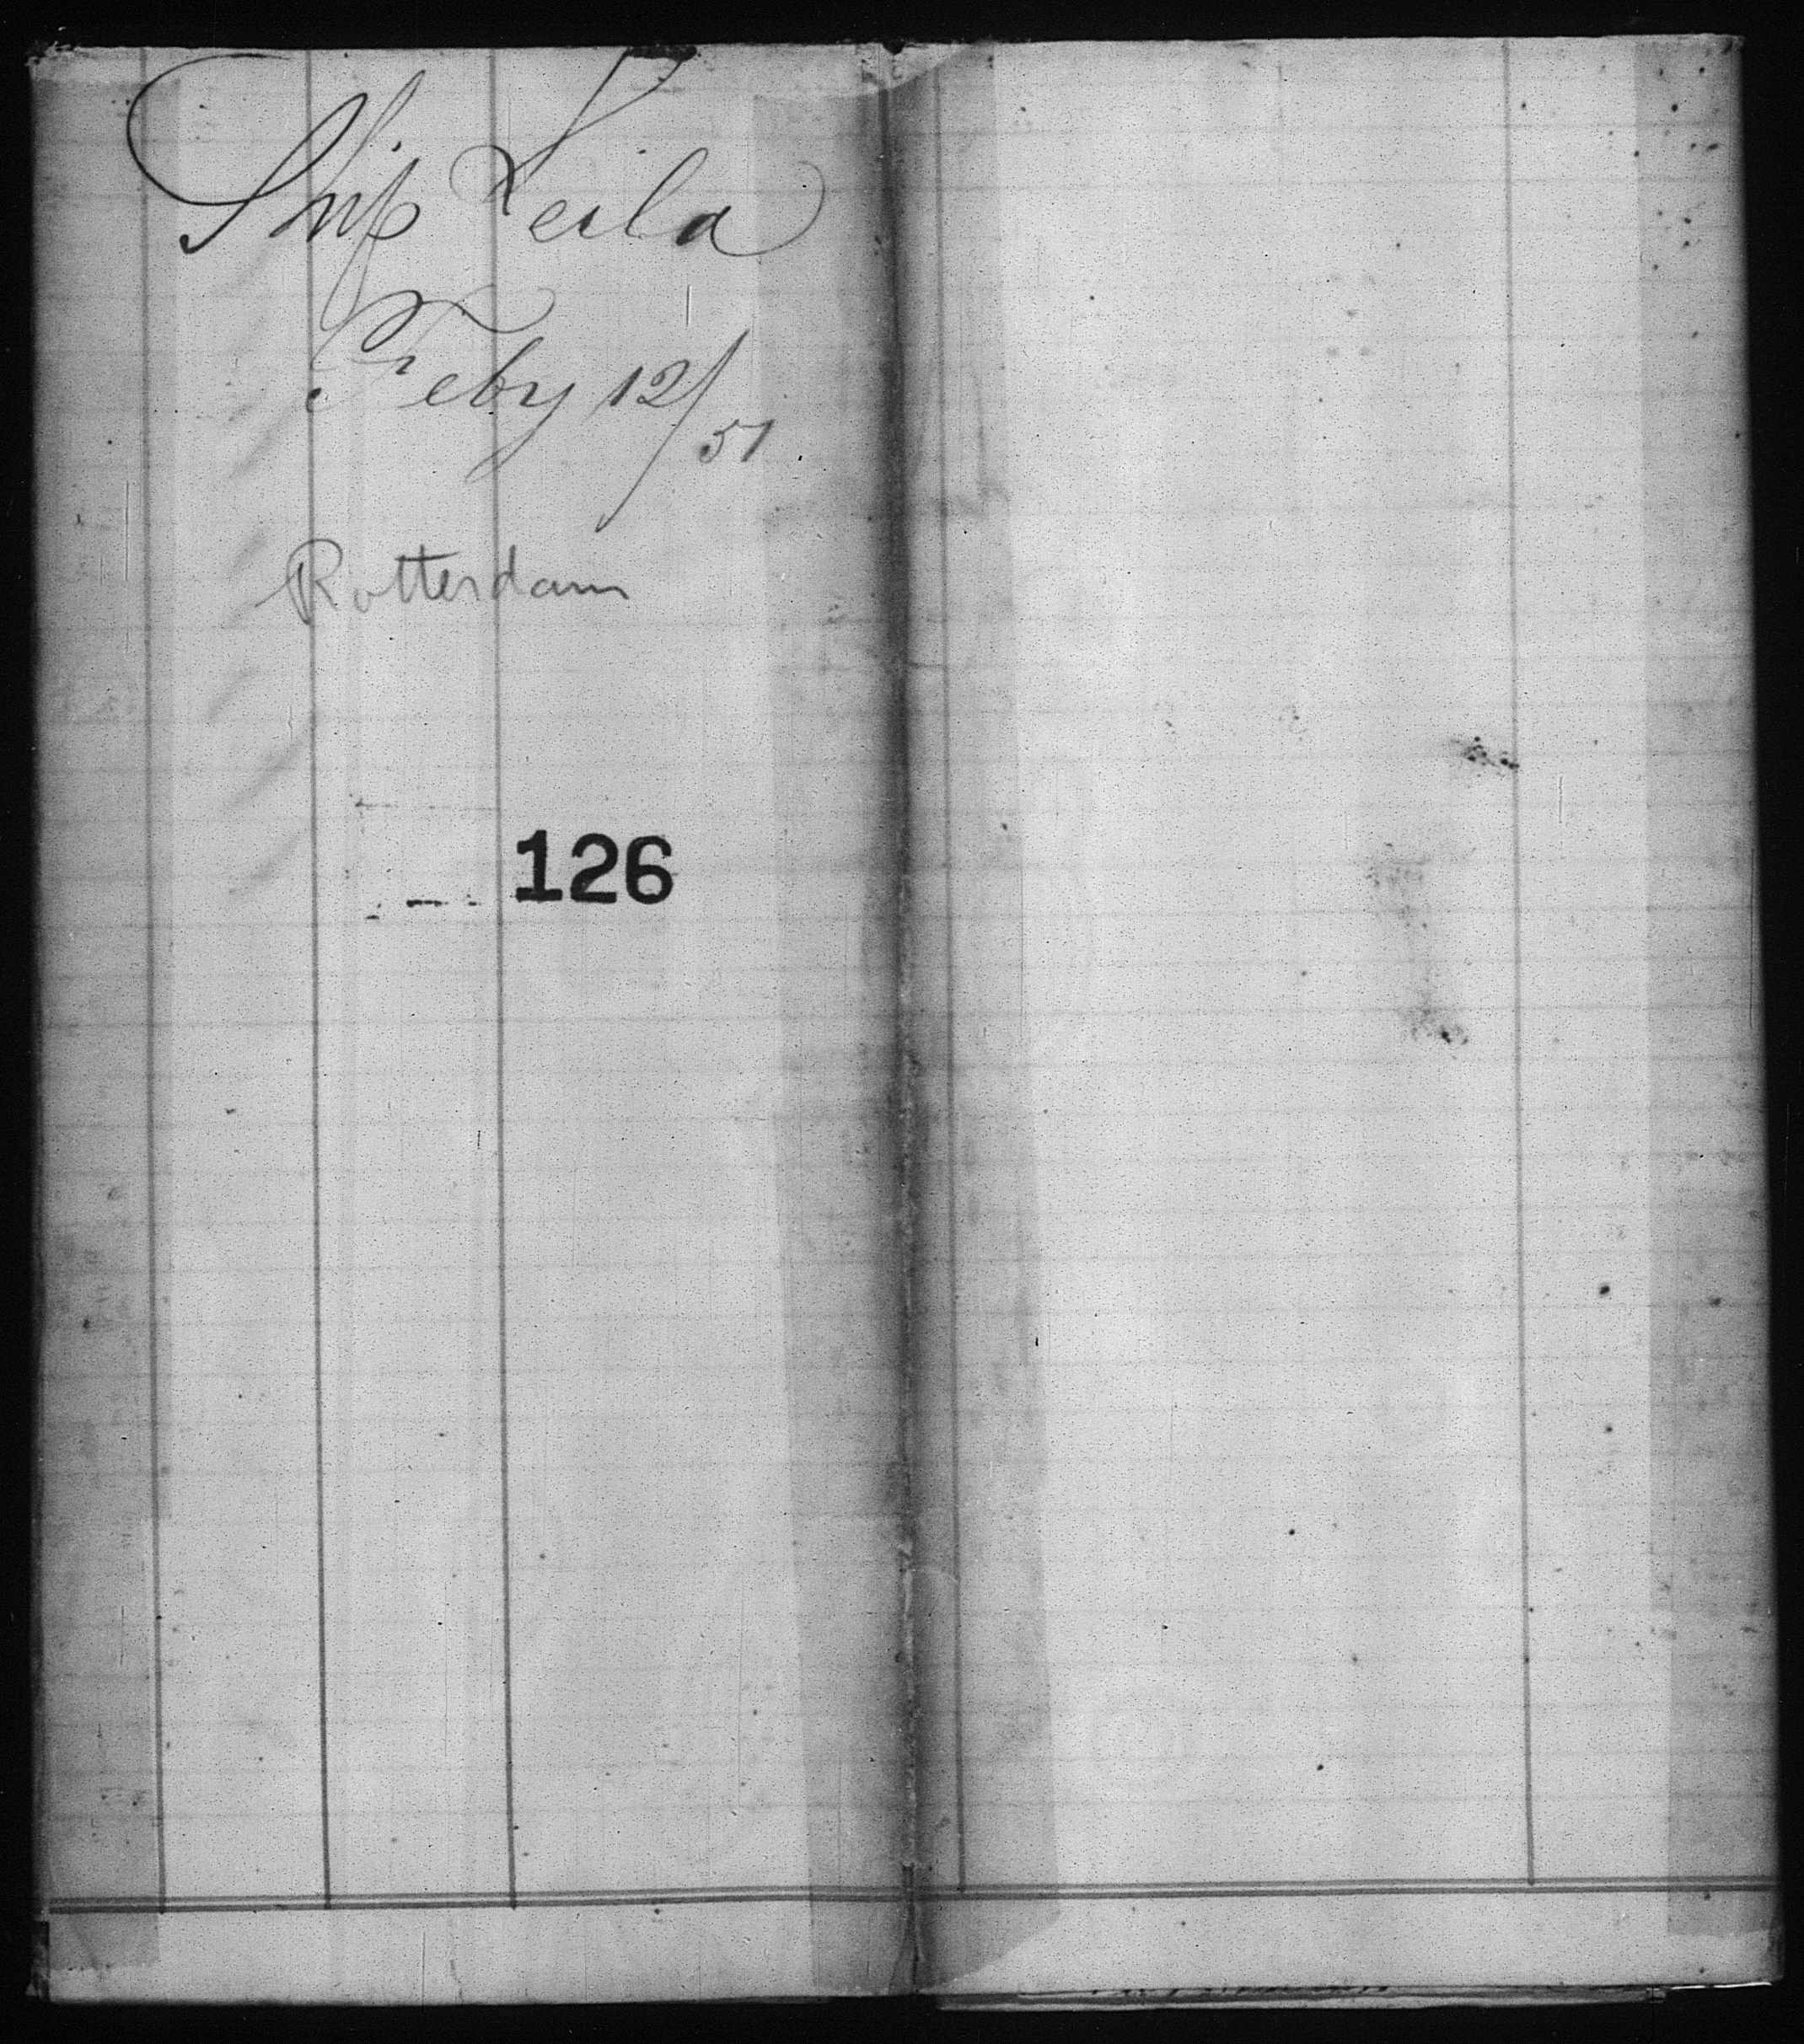 Ship Leila
Feby 12/51
Rotterdam
126